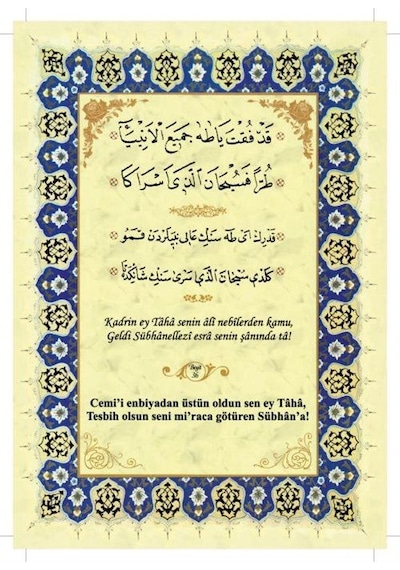 قَدْ فُقْتَ يَا طٰهٰ جَمِيعَ الْاَنْبِيَٓا
طُرًّا فَسُبْحَانَ الَّذٓى اَسْرَاكَا
قدرك اى طه سنك عالى نبيلردن قمو
كلدى سبحان الذى اسرى سنك شانكده تا
Kadrin ey Tâhâ senin âlî nebîlerden kamu,
Geldi Sübhânellezî esrâ senin şânında tâ!
Cemi’i enbiyadan üstün oldun sen ey Tâhâ,
Tesbih olsun seni mi’raca götüren Sübhân’a!